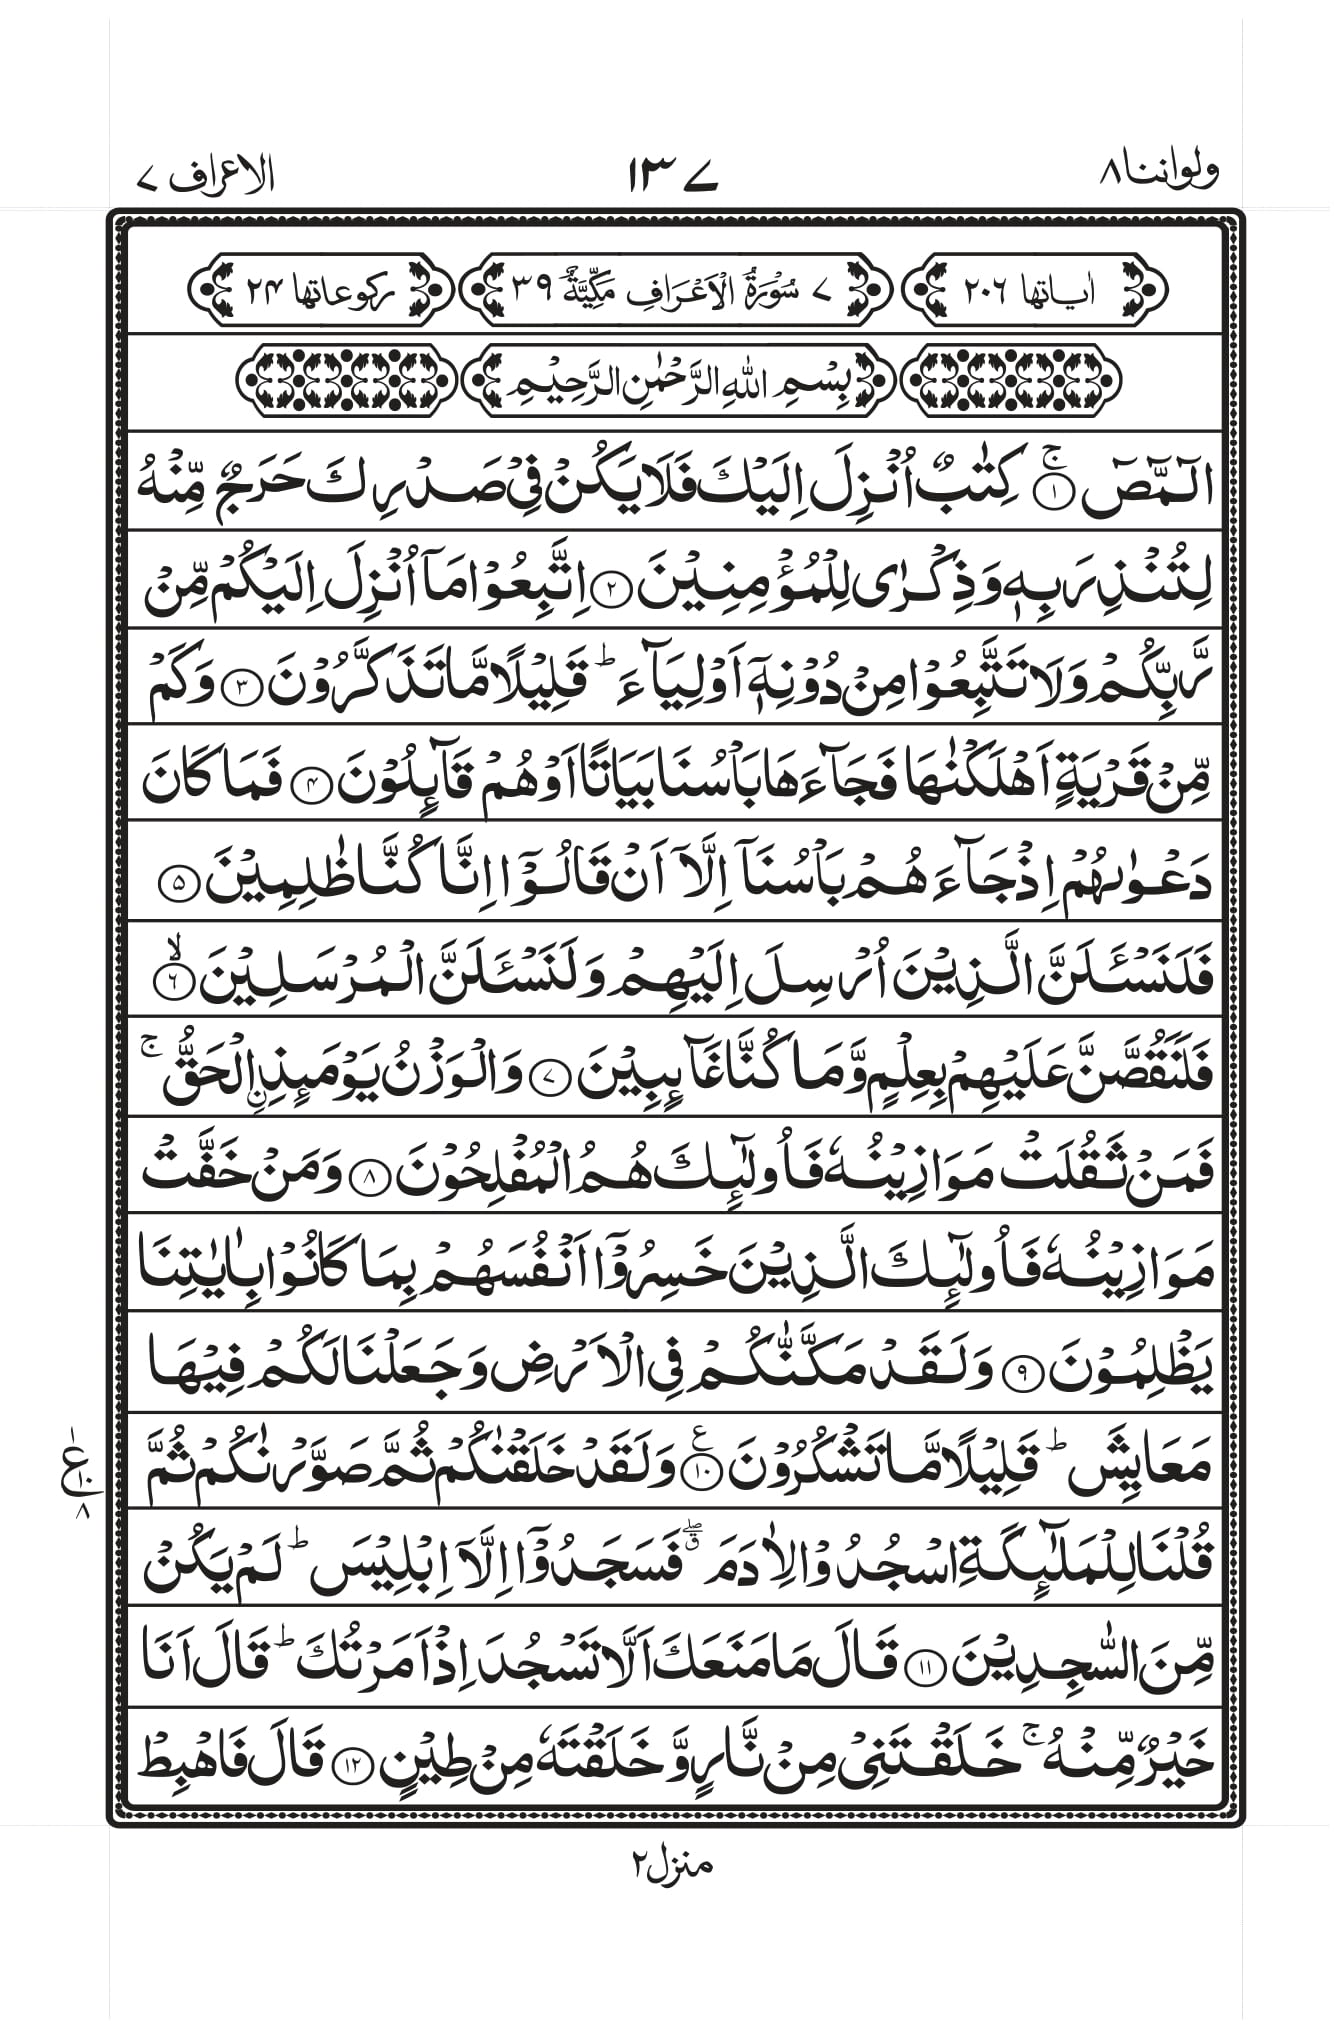 ولواننا ٨
١٣٧
الاعراف ٧
اٰیاتها ٢٠٦
٧ سُوْرَةُ الْاَعْرَافِ مَكِّيَّةٌ ٣٩
ركوعاتها ٢٤
بِسْمِ اللهِ الرَّحْمٰنِ الرَّحِيْمِ
الٓمّٓصٓ ۚ﴿١﴾ كِتٰبٌ اُنْزِلَ اِلَيْكَ فَلَا يَكُنْ فِيْ صَدْرِكَ حَرَجٌ مِّنْهُ
لِتُنْذِرَ بِهٖ وَذِكْرٰى لِلْمُؤْمِنِيْنَ ﴿٢﴾ اِتَّبِعُوْا مَآ اُنْزِلَ اِلَيْكُمْ مِّنْ
رَّبِّكُمْ وَلَا تَتَّبِعُوْا مِنْ دُوْنِهٖٓ اَوْلِيَآءَ ؕ قَلِيْلًا مَّا تَذَكَّرُوْنَ ﴿٣﴾ وَكَمْ
مِّنْ قَرْيَةٍ اَهْلَكْنٰهَا فَجَآءَهَا بَاْسُنَا بَيَاتًا اَوْ هُمْ قَآئِلُوْنَ ﴿٤﴾ فَمَا كَانَ
دَعْوٰىهُمْ اِذْ جَآءَهُمْ بَاْسُنَآ اِلَّآ اَنْ قَالُوْٓا اِنَّا كُنَّا ظٰلِمِيْنَ ﴿٥﴾
فَلَنَسْـَٔلَنَّ الَّذِيْنَ اُرْسِلَ اِلَيْهِمْ وَلَنَسْـَٔلَنَّ الْمُرْسَلِيْنَ ۙ﴿٦﴾
فَلَنَقُصَّنَّ عَلَيْهِمْ بِعِلْمٍ وَّمَا كُنَّا غَآئِبِيْنَ ﴿٧﴾ وَالْوَزْنُ يَوْمَئِذِ ۨالْحَقُّ ۚ
فَمَنْ ثَقُلَتْ مَوَازِيْنُهٗ فَاُولٰٓئِكَ هُمُ الْمُفْلِحُوْنَ ﴿٨﴾ وَمَنْ خَفَّتْ
مَوَازِيْنُهٗ فَاُولٰٓئِكَ الَّذِيْنَ خَسِرُوْٓا اَنْفُسَهُمْ بِمَا كَانُوْا بِاٰيٰتِنَا
يَظْلِمُوْنَ ﴿٩﴾ وَلَقَدْ مَكَّنّٰكُمْ فِي الْاَرْضِ وَجَعَلْنَا لَكُمْ فِيْهَا
مَعَايِشَ ؕ قَلِيْلًا مَّا تَشْكُرُوْنَ ﴿١٠﴾ ع وَلَقَدْ خَلَقْنٰكُمْ ثُمَّ صَوَّرْنٰكُمْ ثُمَّ
ع ١ ١٠ ٨
قُلْنَا لِلْمَلٰٓئِكَةِ اسْجُدُوْا لِاٰدَمَ ۖق فَسَجَدُوْٓا اِلَّآ اِبْلِيْسَ ؕ لَمْ يَكُنْ
مِّنَ السّٰجِدِيْنَ ﴿١١﴾ قَالَ مَا مَنَعَكَ اَلَّا تَسْجُدَ اِذْ اَمَرْتُكَ ؕ قَالَ اَنَا
خَيْرٌ مِّنْهُ ۚ خَلَقْتَنِيْ مِنْ نَّارٍ وَّخَلَقْتَهٗ مِنْ طِيْنٍ ﴿١٢﴾ قَالَ فَاهْبِطْ
منزل ٢